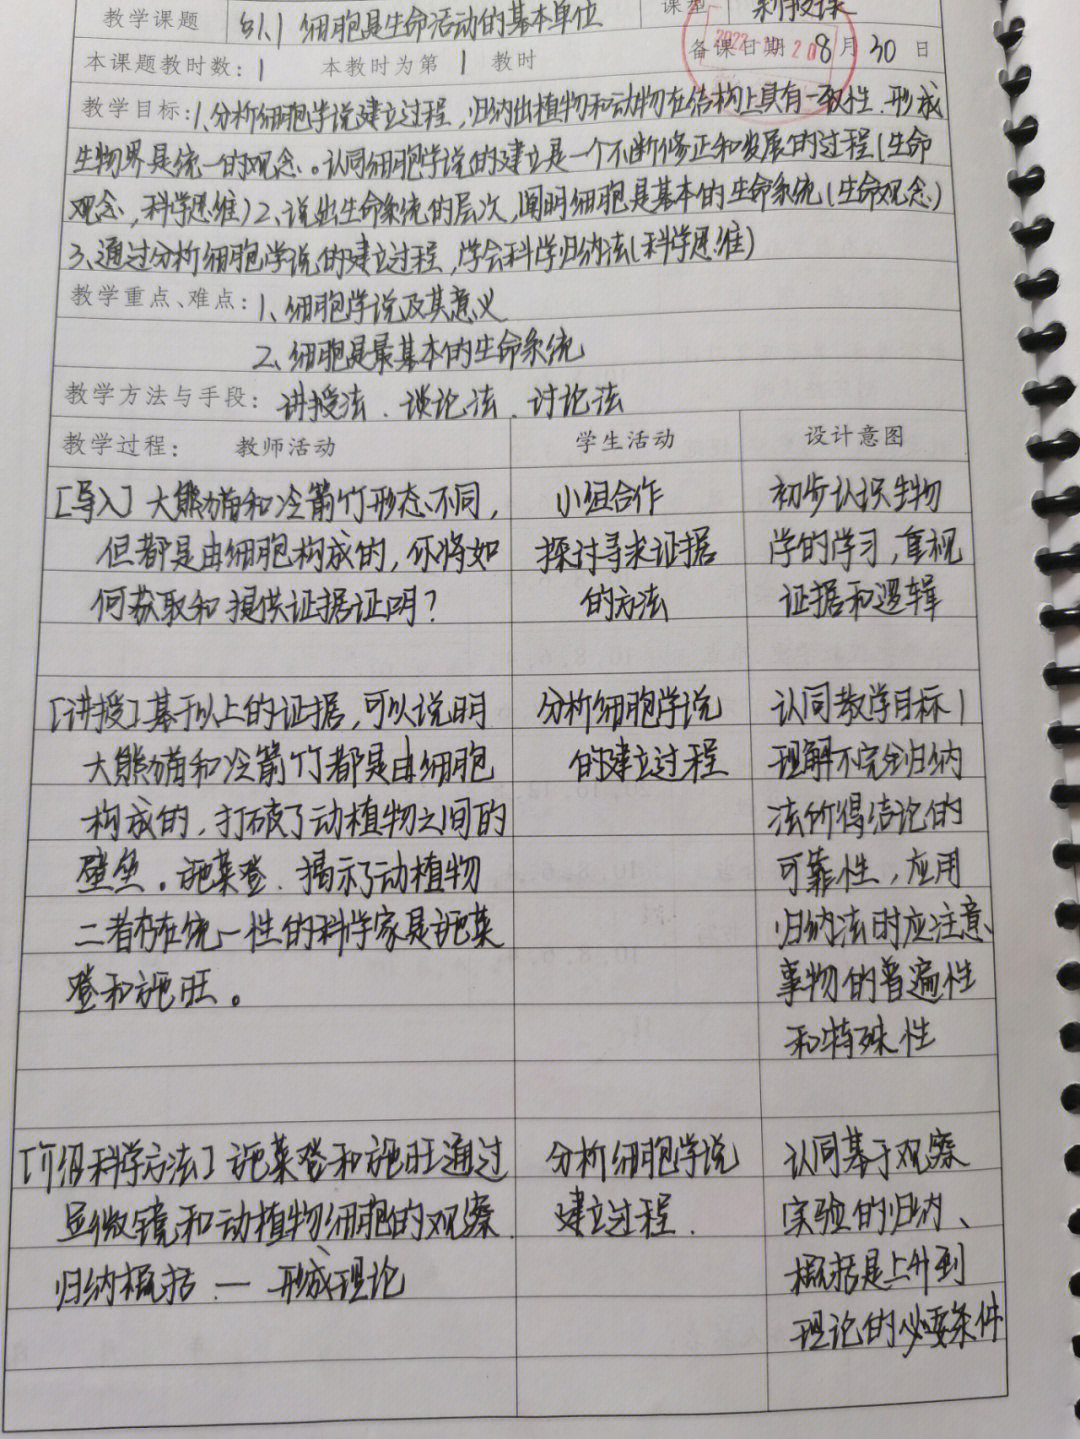 教学课题 §1.1 细胞是生命活动的基本单位 课型 新授课
本课题教时数：1 本教时为第 1 教时 备课日期 8月30日
教学目标：1、分析细胞学说建立过程，归纳出植物和动物在结构上具有一致性、形成
生物界是统一的观念。认同细胞学说的建立是一个不断修正和发展的过程(生命
观念，科学思维) 2、说出生命系统的层次，阐明细胞是基本的生命系统(生命观念)
3、通过分析细胞学说的建立过程，学会科学归纳法(科学思维)
教学重点、难点：1、细胞学说及其意义
2、细胞是最基本的生命系统
教学方法与手段：讲授法、谈论法、讨论法
教学过程： 教师活动 学生活动 设计意图
[导入] 大熊猫和冷箭竹形态不同， 小组合作 初步认识生物
但都是由细胞构成的，你将如 探讨寻求证据 学的学习，重视
何获取和提供证据证明？ 的方法 证据和逻辑
[讲授] 基于以上的证据，可以说明 分析细胞学说 认同教学目标1
大熊猫和冷箭竹都是由细胞 的建立过程 理解不完全归纳
构成的，打破了动植物之间的 法所得结论的
壁垒。施莱登、揭示了动植物 可靠性，应用
二者存在统一性的科学家是施莱 归纳法时应注意
登和施旺。 事物的普遍性
和特殊性
[介绍科学方法] 施莱登和施旺通过 分析细胞学说 认同基于观察
显微镜和动植物细胞的观察、 建立过程. 实验的归纳、
归纳概括 — 形成理论 概括是上升到
理论的必要条件